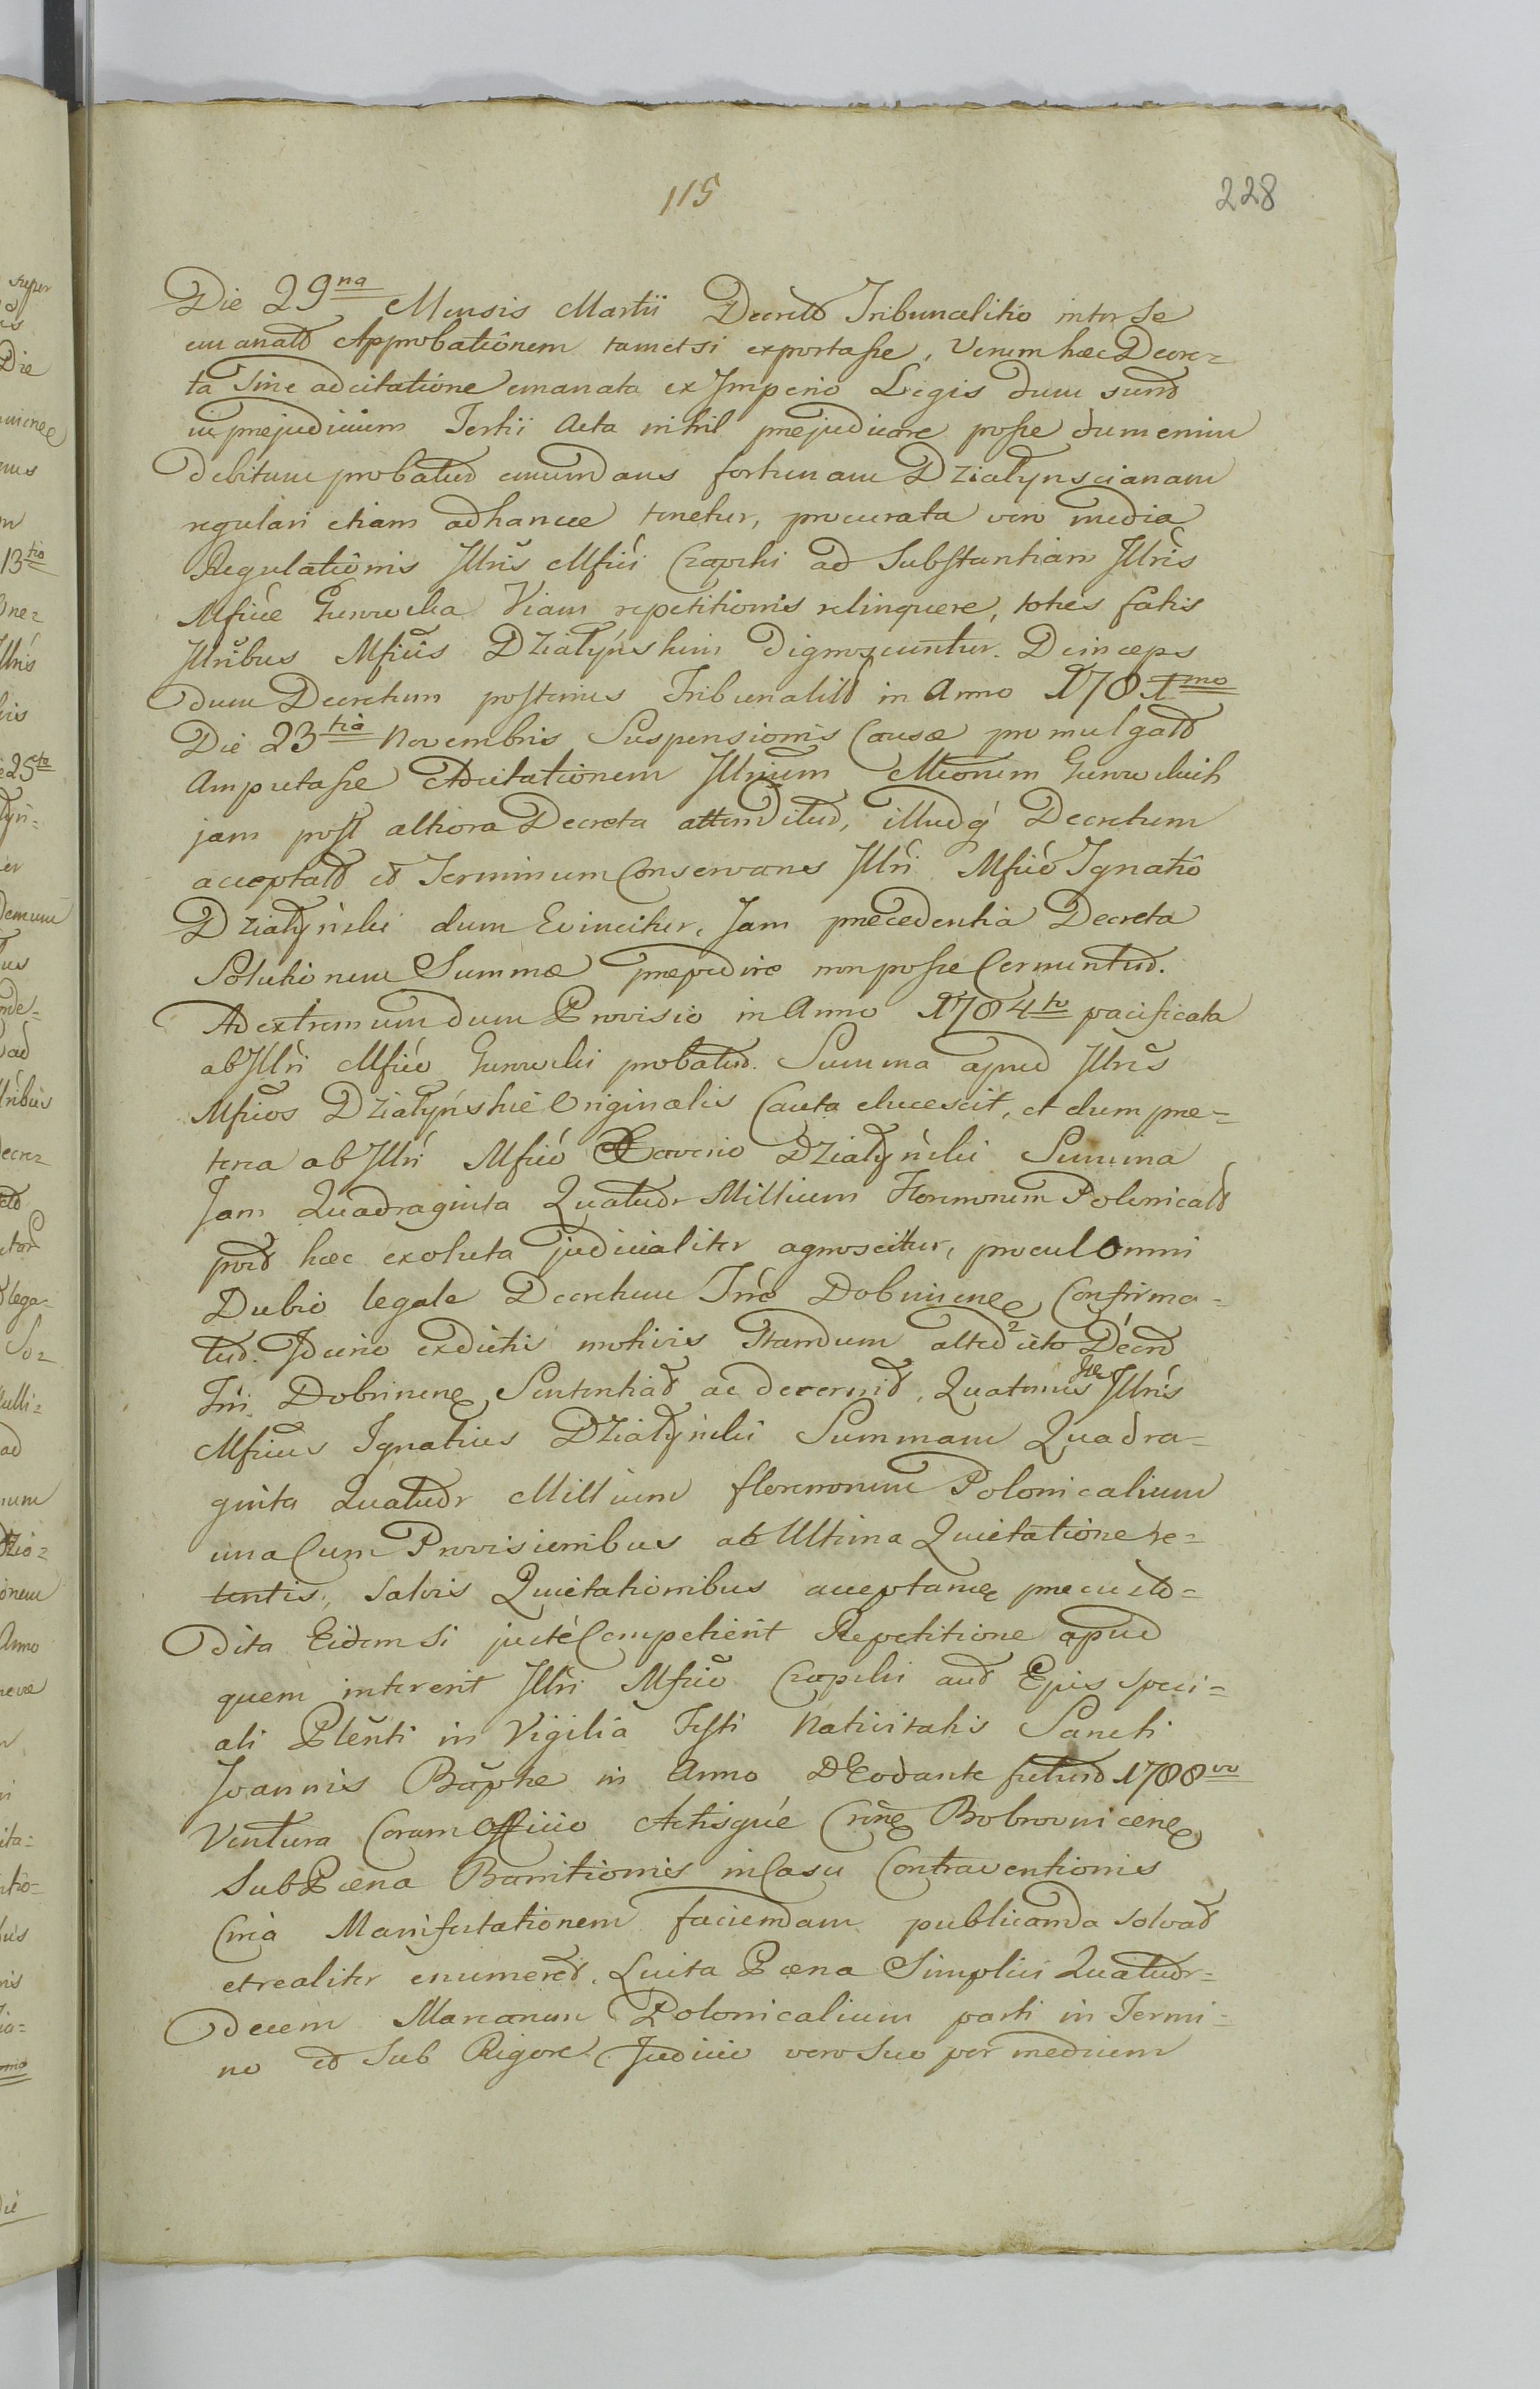 115
228
Die 29na Mensis Martii Decreto Tribunalitio inter Se
emanato Approbationem tametsi exportasse, Verum haec Decre=
ta Sine adcitatione emanata ex Imperio Legis dum sunt
in prejudicium Tertii Acta nihil prejudicare posse dum enim
Debitum probatur emundans fortunam Działynscianam
regulari etiam adhancce tenetur, procurata vero media
Regulationis Illris Mfici Czapski ad Substantiam Illris
Mficae Gurowska Viam repetitionis relinquere, toties fatis
Illribus Mficis Działyńskim Dignoscuntur. Deinceps
dum Decretum posterius Tribunalit in Anno 1781mo
Die 23tia Novembris Suspensionis Causae promulgatt
Amputasse Adcitationem Illrium Mcorum Gurowskich
jam post altiora Decreta attenditur, illudq Decretum
acceptatt et Terminum Conservans Illri Mfico Ignatio
Działyński dum Evincitur, Jam precedentia Decreta
Solutionem Summae prepedire non posse Cernuntur.
Ad extremum dum Provisio in Anno 1784to pacificata
ab Illri Mfico Gurowski probatur. Summa apud Illres
Mficos Działyńskie Originalis Cauta elucescit, et dum pre=
terea ab Illri Mfico Xaverio Działyński Summa
Jam Quadraginta Quatuor Millium Florenorum Polonicall
post haec exoluta judicialiter agnoscitur, procul omni
Dubio legale Decretum Trre Dobrinense Confirma=
tur. Idcirco exdictis motivis Standum
Trri Dobrinense Sententiat ac decernit, Quatenus Illris
Mficus Ignatius Działyński Summam Quadra=
ginta Quatuor Millium florenorum Polonicalium
una Cum Provisionibus ab Ultima Quietatione re=
tentis, salvis Quietationibus acceptanae precusto=
dita Eidem si juste Competierit Repetitione apud
quem intererit Illri Mfico Czapski aut Ejus speci=
ali Plenti in Vigilia Festi Nativitatis Sancti
Joannis Bapttae in Anno DEodante futuro 1788vo
Ventura Coram Officio Actisque Crense Bobrovnicense
Sub Paena Bannitionis in Casu Contraventionis
Circa Manifestationem faciendam publicanda solvat
et realiter enumeret. Luita Paena Simplici Quatuor=
decem Marcarum Polonicalium parti in Termi=
no et Sub Rigore Judicio vero Suo per medium